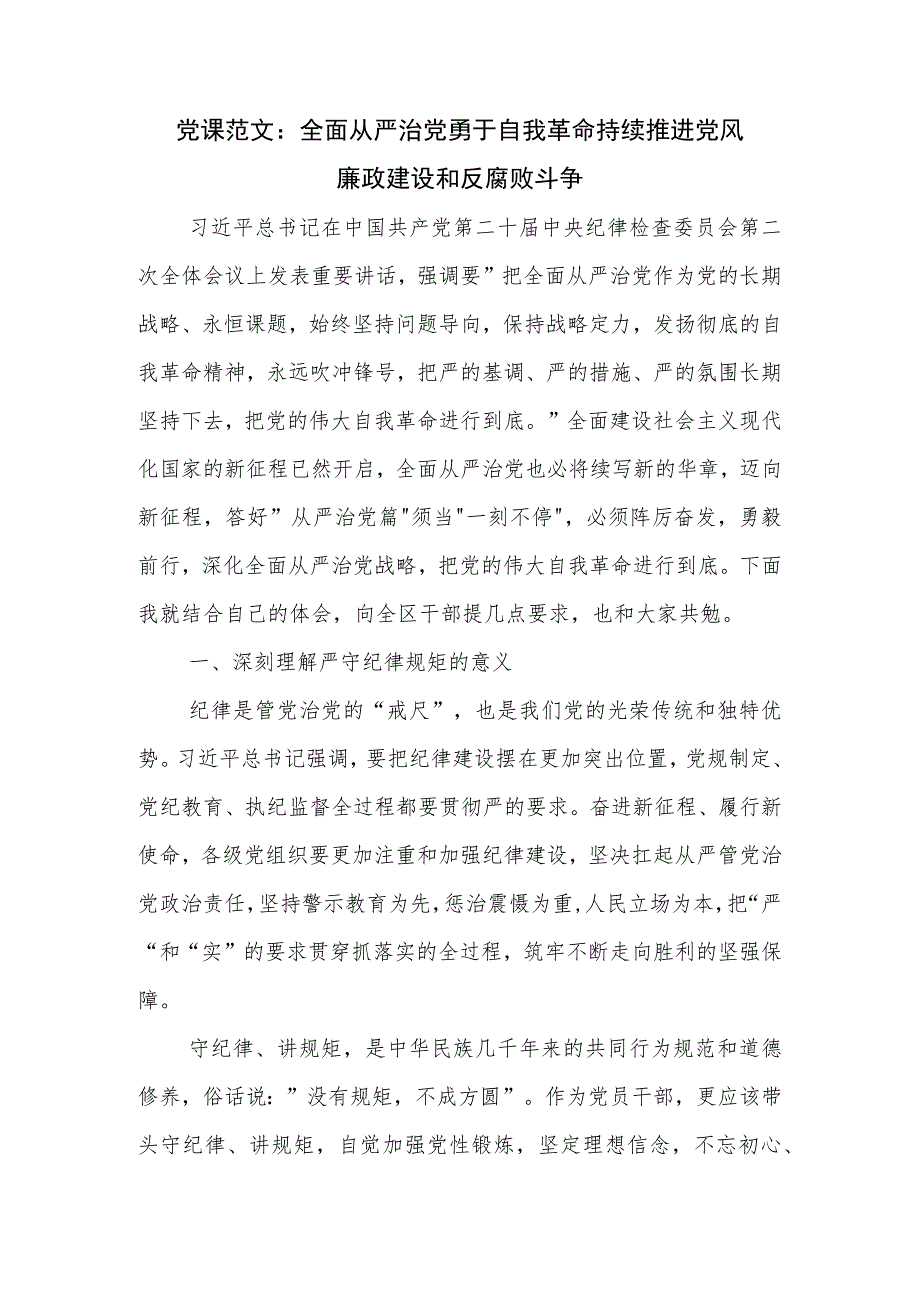 党课范文：全面从严治党勇于自我革命持续推进党风
廉政建设和反腐败斗争
习近平总书记在中国共产党第二十届中央纪律检查委员会第二
次全体会议上发表重要讲话，强调要”把全面从严治党作为党的长期
战略、永恒课题，始终坚持问题导向，保持战略定力，发扬彻底的自
我革命精神，永远吹冲锋号，把严的基调、严的措施、严的氛围长期
坚持下去，把党的伟大自我革命进行到底。”全面建设社会主义现代
化国家的新征程已然开启，全面从严治党也必将续写新的华章，迈向
新征程，答好”从严治党篇"须当"一刻不停"，必须阵厉奋发，勇毅
前行，深化全面从严治党战略，把党的伟大自我革命进行到底。下面
我就结合自己的体会，向全区干部提几点要求，也和大家共勉。
一、深刻理解严守纪律规矩的意义
纪律是管党治党的“戒尺”，也是我们党的光荣传统和独特优
势。习近平总书记强调，要把纪律建设摆在更加突出位置，党规制定、
党纪教育、执纪监督全过程都要贯彻严的要求。奋进新征程、履行新
使命，各级党组织要更加注重和加强纪律建设，坚决扛起从严管党治
党政治责任，坚持警示教育为先，惩治震慑为重,人民立场为本，把“严
“和“实”的要求贯穿抓落实的全过程，筑牢不断走向胜利的坚强保
障。
守纪律、讲规矩，是中华民族几千年来的共同行为规范和道德
修养，俗话说：”没有规矩，不成方圆”。作为党员干部，更应该带
头守纪律、讲规矩，自觉加强党性锻炼，坚定理想信念，不忘初心、